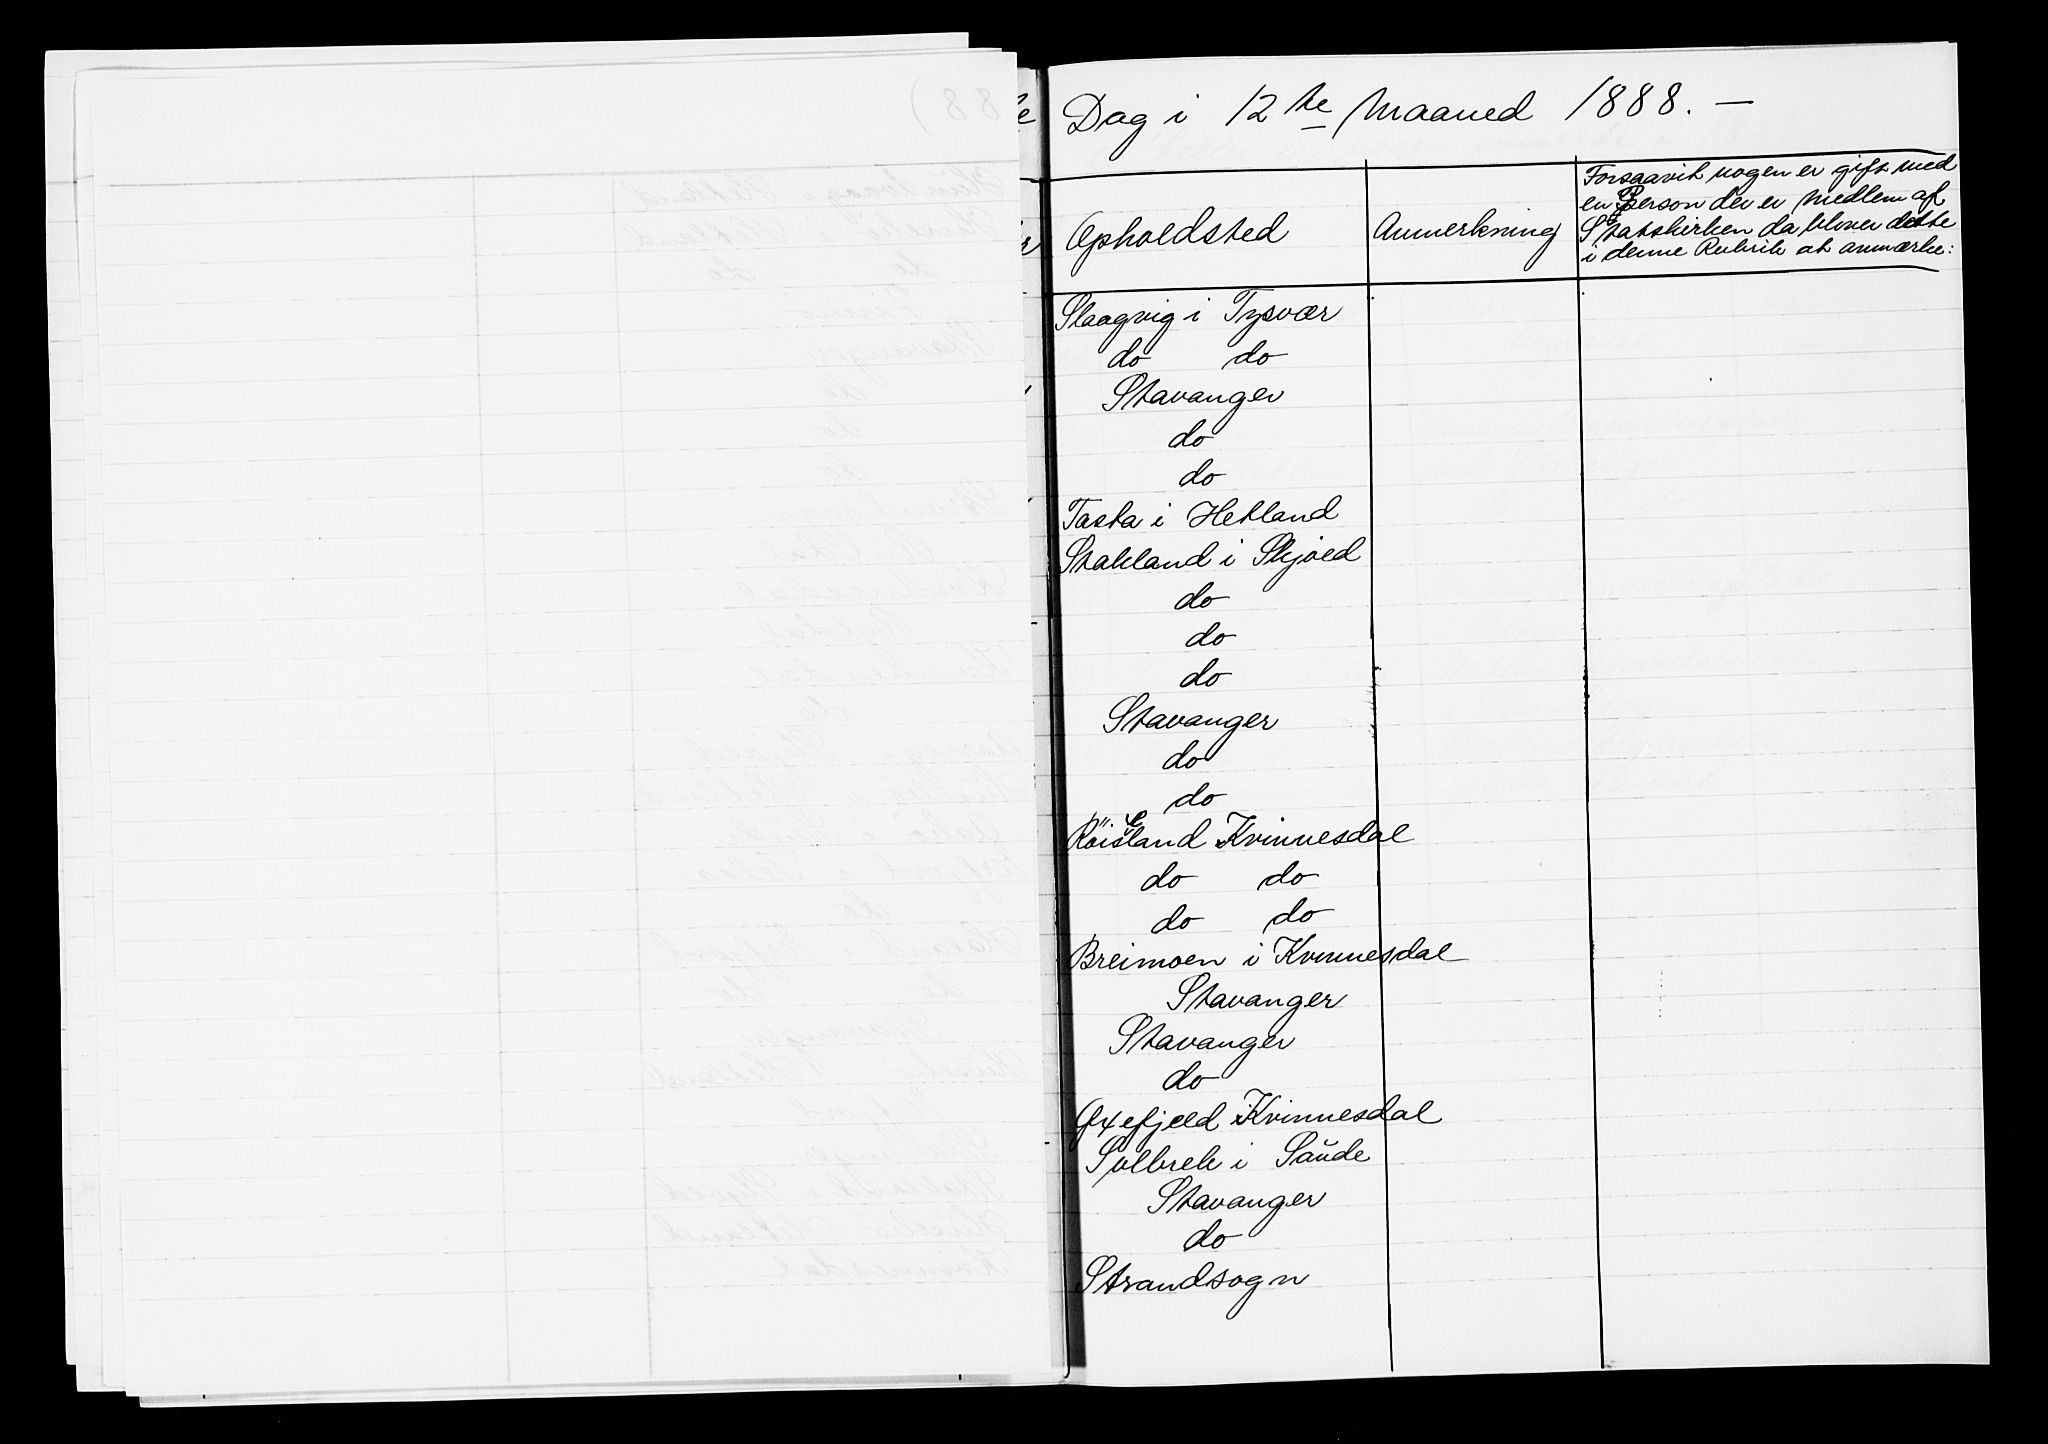 Dag i 12te Maaned 1888. —
Opholdsted
Anmerkning
Forsaavit nogen er gift med
en Person der er Medlem af
Statskirken da bliver dette
i denne Rubrik at anmærke:
Slaagvig i Tysvær
do do
Stavanger
do
do
Tasta i Hetland
Stakland i Skjold
do
do
do
Stavanger
do
do
Röisland Kvinnesdal
do do
do do
Breimoen i Kvinnesdal
Stavanger
Stavanger
do
Oxefjeld i Kvinnesdal
Solbrek i Saude
Stavanger
do
Strandsogn